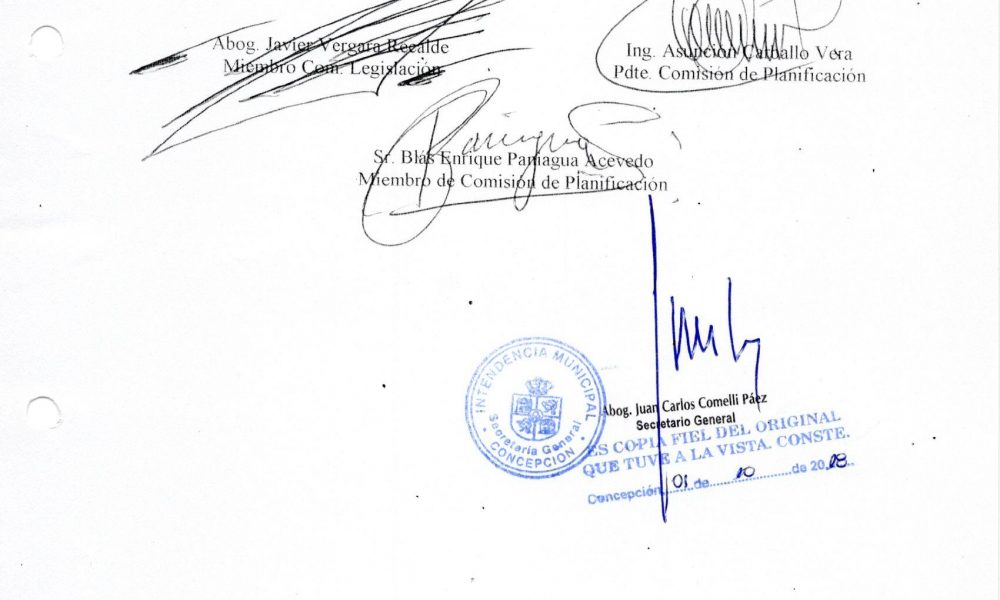 Abog. Javier Vergara Recalde
Miembro Com. Legislación
Ing. Asunción Carballo Vera
Pdte. Comisión de Planificación
Sr. Blás Enrique Paniagua Acevedo
Miembro de Comisión de Planificación
INTENDENCIA MUNICIPAL
Secretaría General
CONCEPCION
Abog. Juan Carlos Comelli Páez
Secretario General
ES COPIA FIEL DEL ORIGINAL
QUE TUVE A LA VISTA. CONSTE.
Concepción, 01 de 10 de 2018